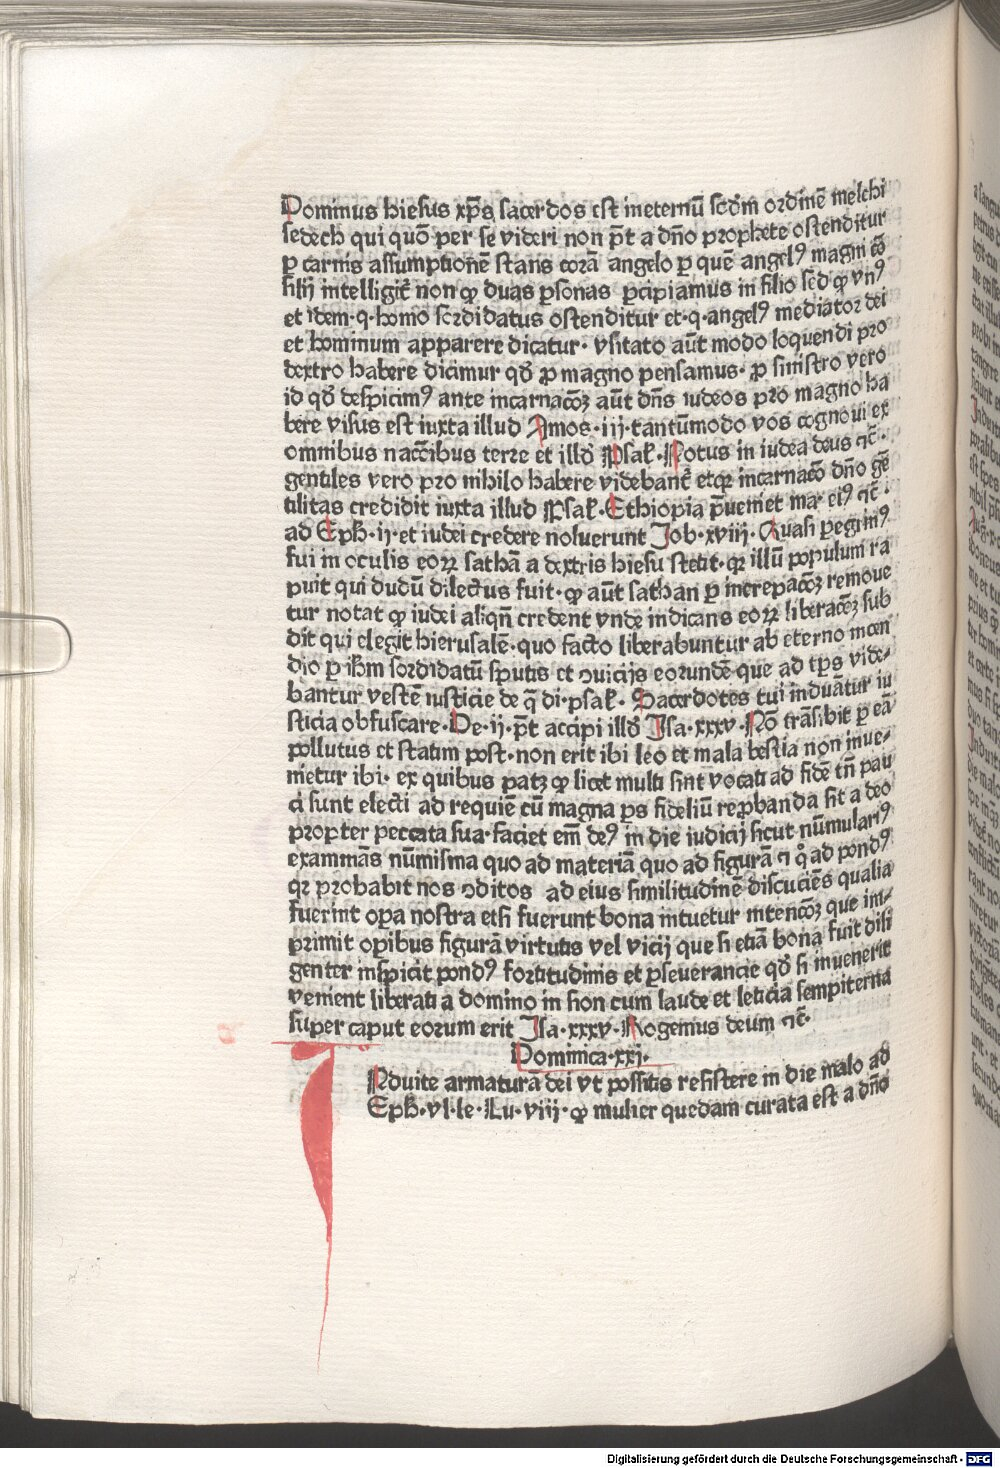 Dominus hiesus xp̄s sacerdos est ineternū scd̄m ordinē melchi
sedech qui quō per se videri non pōt a dn̄o prophete ostenditur
ꝑ carnis assumptionē stans corā angelo ꝑ quē angelꝰ magni cō
silij intelligit̄ non ꝙ duas ꝑsonas ꝑcipiamus in filio sed ꝙ vnꝰ
et idem·q·homo sordidatus ostenditur et·q·angelꝰ mediator dei
et hominum apparere dicatur· vsitato aūt modo loquendi pro
dextro habere dicimur qd̄ ꝓ magno pensamus· ꝓ sinistro vero
id qd̄ despicimꝰ ante incarnacōꝫ aūt dn̄s iudeos pro magno ha
bere visus est iuxta illud Amos·iij·tantūmodo vos cognoui ex
omnibus nacōibus terre et illd̄ Psal̄·Notus in iudea deus ⁊c̄·
gentiles vero pro nihilo habere videbant̄ etqꝫ incarnacō dn̄o gē
tilitas credidit iuxta illud Psal̄·Ethiopia p̄ueniet ma· eiꝰ ⁊c̄·
ad Eph·ij·et iudei credere noluerunt Job·xviij·Quasi ꝑegrinꝰ
fui in oculis eoꝝ sathā a dextris hiesu stetit·qꝛ illū populum ra
puit qui dudū dilectus fuit·ꝙ aūt sathan ꝑ increpacōꝫ remoue
tur notat ꝙ iudei aliqn̄ credent vnde indicans eoꝝ liberacōꝫ sub
dit qui elegit hierusalē·quo facto liberabuntur ab eterno incen
dio ꝑ ih̄m sordidatū sputis et ꝯuicijs eorundē que ad tp̄s vide⸗
bantur vestē iusticie de q̄ di·psal̄· Sacerdotes tui induātur iu
sticia obfuscare·De·ij·pōt accipi illd̄ Jsa·xxxv·Nō trāsibit ꝑ eā
pollutus et statim post·non erit ibi leo et mala bestia non inue⸗
nietur ibi· ex quibus patꝫ ꝙ licet multi sint vocati ad fidē tn̄ pau
ci sunt electi ad requiē cū magna ps fideliū reꝓbanda sit a deo
propter peccata sua·faciet em̄ deꝰ in die iudicij sicut nūmulariꝰ
examinās nūmisma quo ad materiā quo ad figurā ⁊ qͦ ad pondꝰ
qꝛ probabit nos ꝯditos ad eius similitudinē discuciēs qualia
fuerint oꝑa nostra etsi fuerunt bona intuetur intencōꝫ que im⸗
primit oꝑibus figurā virtutis vel vicij que si etiā bona fuit dili
genter inspicit pondꝰ fortitudinis et ꝑseuerancie qd̄ si inuenerit
venient liberati a domino in sion cum laude et leticia sempiterna
super caput eorum erit Jsa·xxxv·Rogemus deum ⁊c̄·
Dominica·xxj·
I Nduite armaturā dei vt possitis resistere in die malo ad
Eph·vl·le·Lu·viij·ꝙ mulier quedam curata est a dn̄o
Digitalisierung gefördert durch die Deutsche Forschungsgemeinschaft - DFG